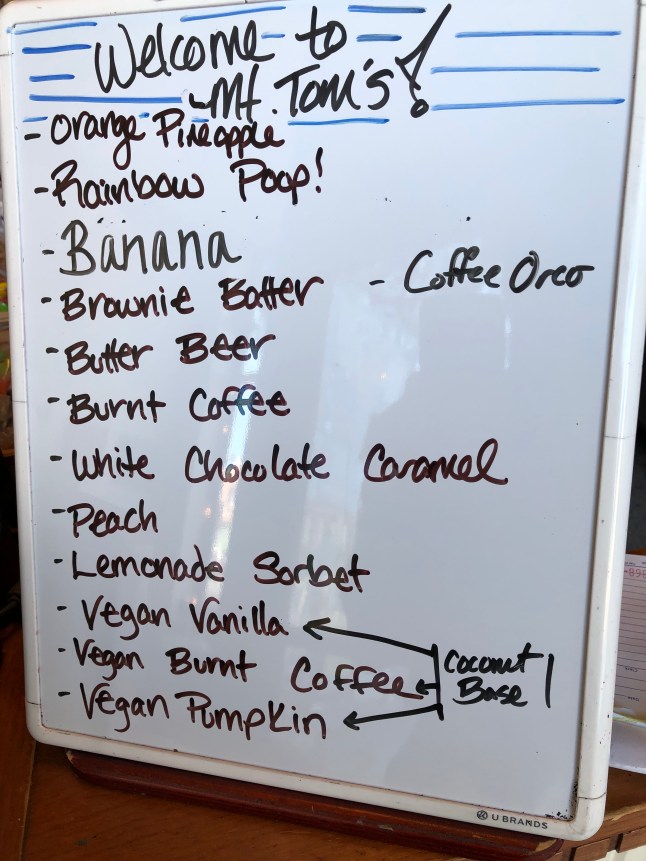 Welcome to
Mt. Tom's!
- Orange Pineapple
- Rainbow Poop!
- Banana
- Brownie Batter - Coffee Oreo
- Butter Beer
- Burnt Coffee
- White Chocolate Caramel
- Peach
- Lemonade Sorbet
- Vegan Vanilla
- Vegan Burnt Coffee
- Vegan Pumpkin
Coconut
Base
U BRANDS